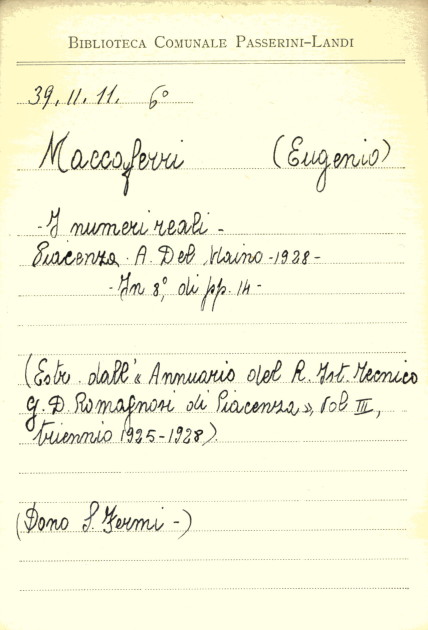 BIBLIOTECA COMUNALE PASSERINI-LANDI
39.11.11. 6°
Maccaferri (Eugenio)
- I numeri reali -
Piacenza. A. Del Maino - 1928 -
- In 8°, di pp. 14 -
(Estr. dall'« Annuario del R. Ist. Tecnico
G. D. Romagnosi di Piacenza », Vol III,
triennio 1925-1928).
(Dono S. Fermi -)